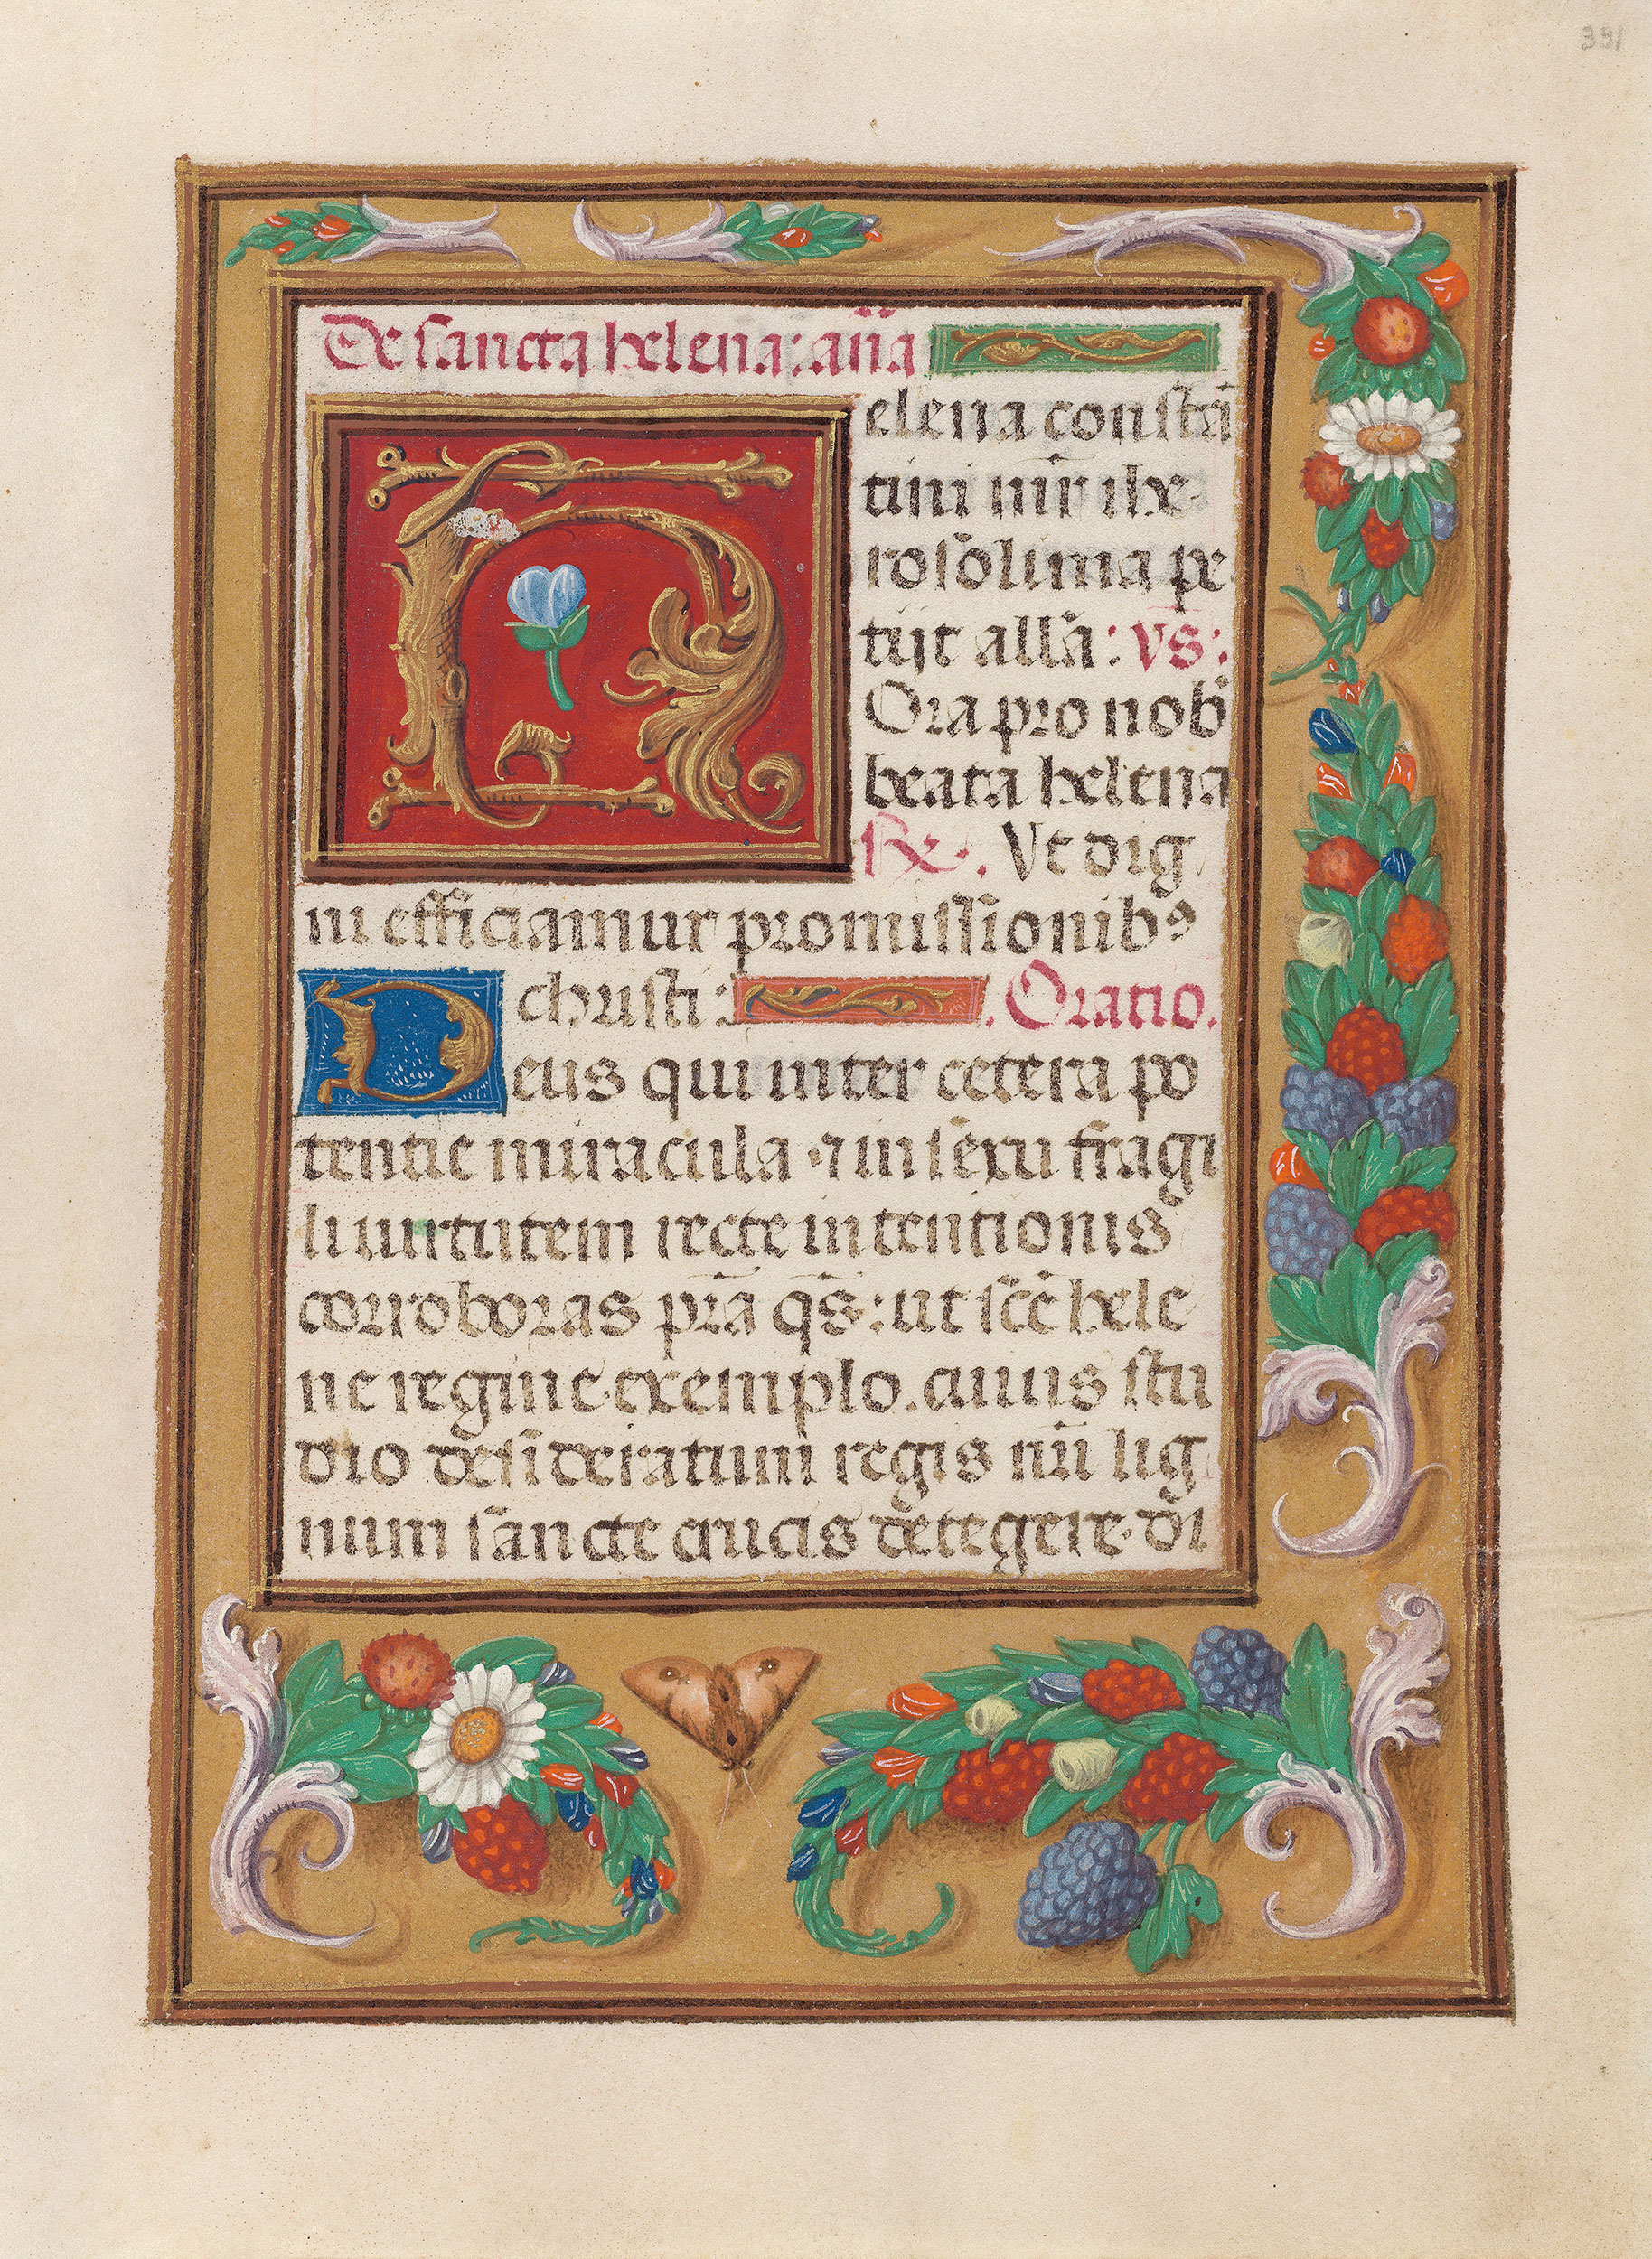 391
De sancta helena: an̄a
Helena constā
tini mr̄ ihe
rosolima pe
tijt all̄a: vs̄:
Ora pro nob̄
beata helena
Rx. Vt dig
ni efficiamur promissionibꝰ
christi: Oratio.
Deus qui inter cetera po
tentie miracula ⁊ in sexu fragi
li uirtutem recte intentionis
corroboras pr̄a qs̄: ut sc̄e hele
ne regine exemplo. cuius stu
dio desideratum regis nr̄i lig
num sancte crucis detegere di